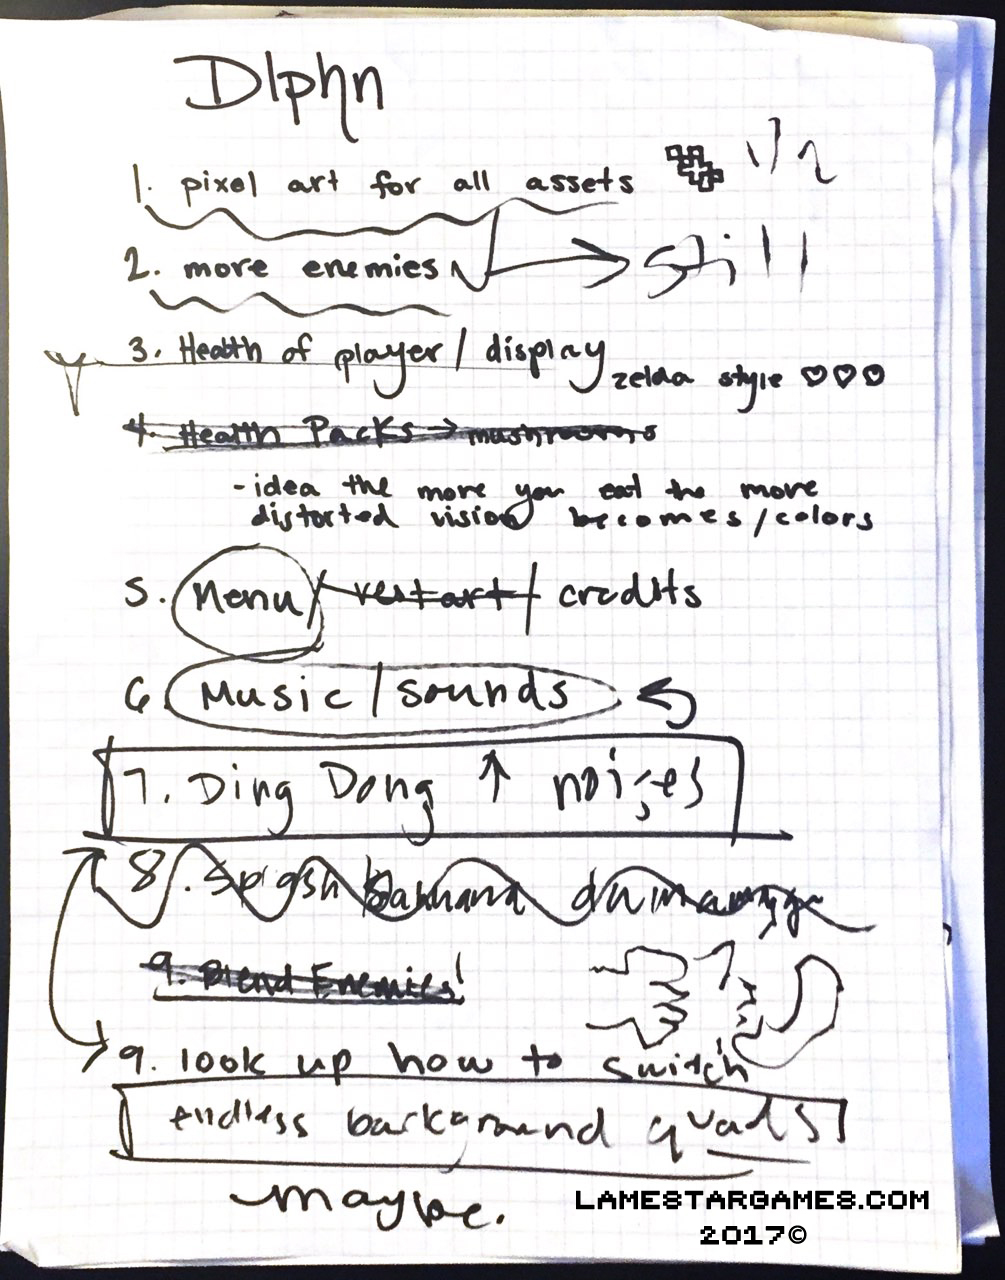 Dlphn
1. pixel art for all assets 1/2
2. more enemies → still
3. Health of player / display
zelda style ♡♡♡
4. Health Packs → mushrooms
- idea the more you eat the more
distorted vision becomes/colors
5. Menu / restart / credits
6. Music / sounds
7. Ding Dong ↑ noises
8. Splash banana
9. Blend Enemies!
9. look up how to switch
endless background quads
maybe.
LAMESTARGAMES.COM
2017©